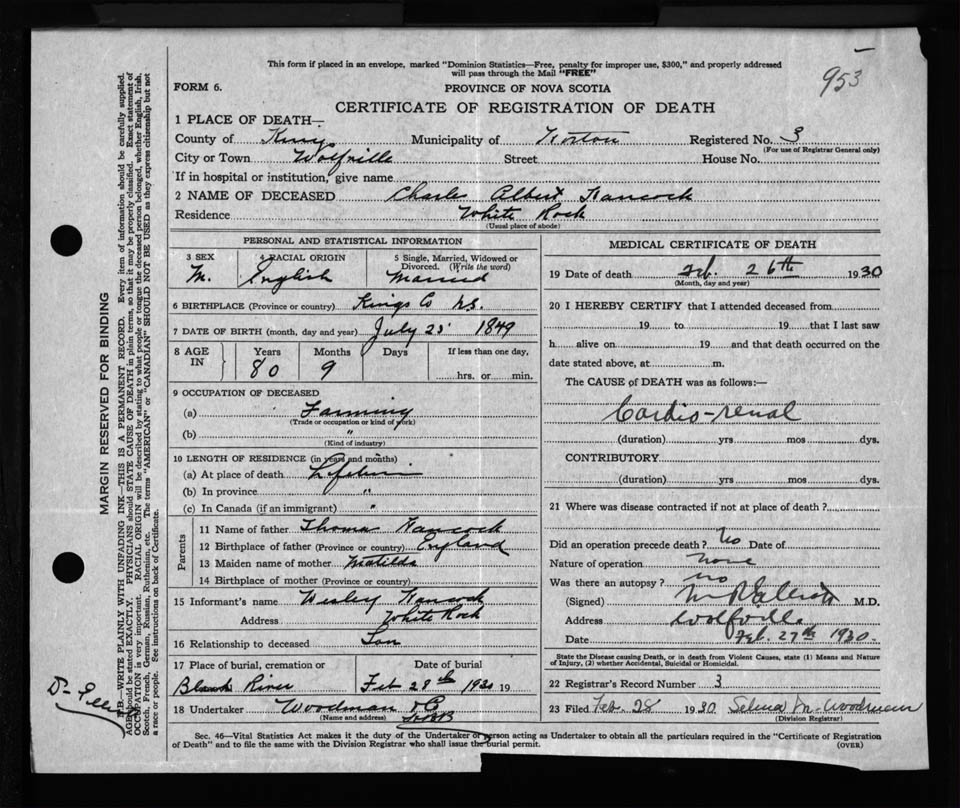 This form if placed in an envelope, marked "Dominion Statistics—Free, penalty for improper use, $300," and properly addressed
will pass through the Mail "FREE"
953
FORM 6.
PROVINCE OF NOVA SCOTIA
CERTIFICATE OF REGISTRATION OF DEATH
1 PLACE OF DEATH—
County of Kings Municipality of Horton Registered No. 3
(For use of Registrar General only)
City or Town Wolfville Street House No.
If in hospital or institution, give name
2 NAME OF DECEASED Charles Albert Hancock
Residence White Rock
(Usual place of abode)
PERSONAL AND STATISTICAL INFORMATION
3 SEX 4 RACIAL ORIGIN 5 Single, Married, Widowed or Divorced. (Write the word)
M. English Married
6 BIRTHPLACE (Province or country) Kings Co N.S.
7 DATE OF BIRTH (month, day and year) July 25 1849
8 AGE IN Years Months Days If less than one day,
80 9 hrs. or min.
9 OCCUPATION OF DECEASED
(a) Farming
(Trade or occupation or kind of work)
(b) "
(Kind of industry)
10 LENGTH OF RESIDENCE (in years and months)
(a) At place of death Lifetime
(b) In province "
(c) In Canada (if an immigrant) "
Parents
11 Name of father Thomas Hancock
12 Birthplace of father (Province or country) England
13 Maiden name of mother Matilda
14 Birthplace of mother (Province or country)
15 Informant's name Wesley Hancock
Address White Rock
16 Relationship to deceased Son
17 Place of burial, cremation or Date of burial
Black River Feb 28th 1930 19
18 Undertaker Woodman & Co
(Name and address)
MEDICAL CERTIFICATE OF DEATH
19 Date of death Feb. 26th 1930
(Month, day and year)
20 I HEREBY CERTIFY that I attended deceased from
19 to 19 that I last saw
h alive on 19 and that death occurred on the
date stated above, at m.
The CAUSE of DEATH was as follows:—
Cardio-renal
(duration) yrs mos dys.
CONTRIBUTORY
(duration) yrs mos dys.
21 Where was disease contracted if not at place of death?
Did an operation precede death? No Date of
Nature of operation None
Was there an autopsy? no
(Signed) M.D.
Address Wolfville
Date Feb. 27th 1930.
State the Disease causing Death, or in death from Violent Causes, state (1) Means and Nature
of Injury, (2) whether Accidental, Suicidal or Homicidal.
22 Registrar's Record Number 3
23 Filed Feb. 28 1930 Selina M. Woodman
(Division Registrar)
Sec. 46—Vital Statistics Act makes it the duty of the Undertaker or person acting as Undertaker to obtain all the particulars required in the "Certificate of Registration
of Death" and to file the same with the Division Registrar who shall issue the burial permit.
(OVER)
MARGIN RESERVED FOR BINDING
N.B.—WRITE PLAINLY WITH UNFADING INK—THIS IS A PERMANENT RECORD. Every item of information should be carefully supplied.
AGE should be stated EXACTLY. PHYSICIANS should STATE CAUSE OF DEATH in plain terms, so that it may be properly classified. Exact statement of
OCCUPATION is very important. RACIAL ORIGIN will be described by stating to what people or tongue the deceased person belonged, whether English, Irish,
Scotch, French, German, Russian, Ruthenian, etc. The terms "AMERICAN" or "CANADIAN" SHOULD NOT BE USED as they express citizenship but not
a race or people. See instructions on back of Certificate.